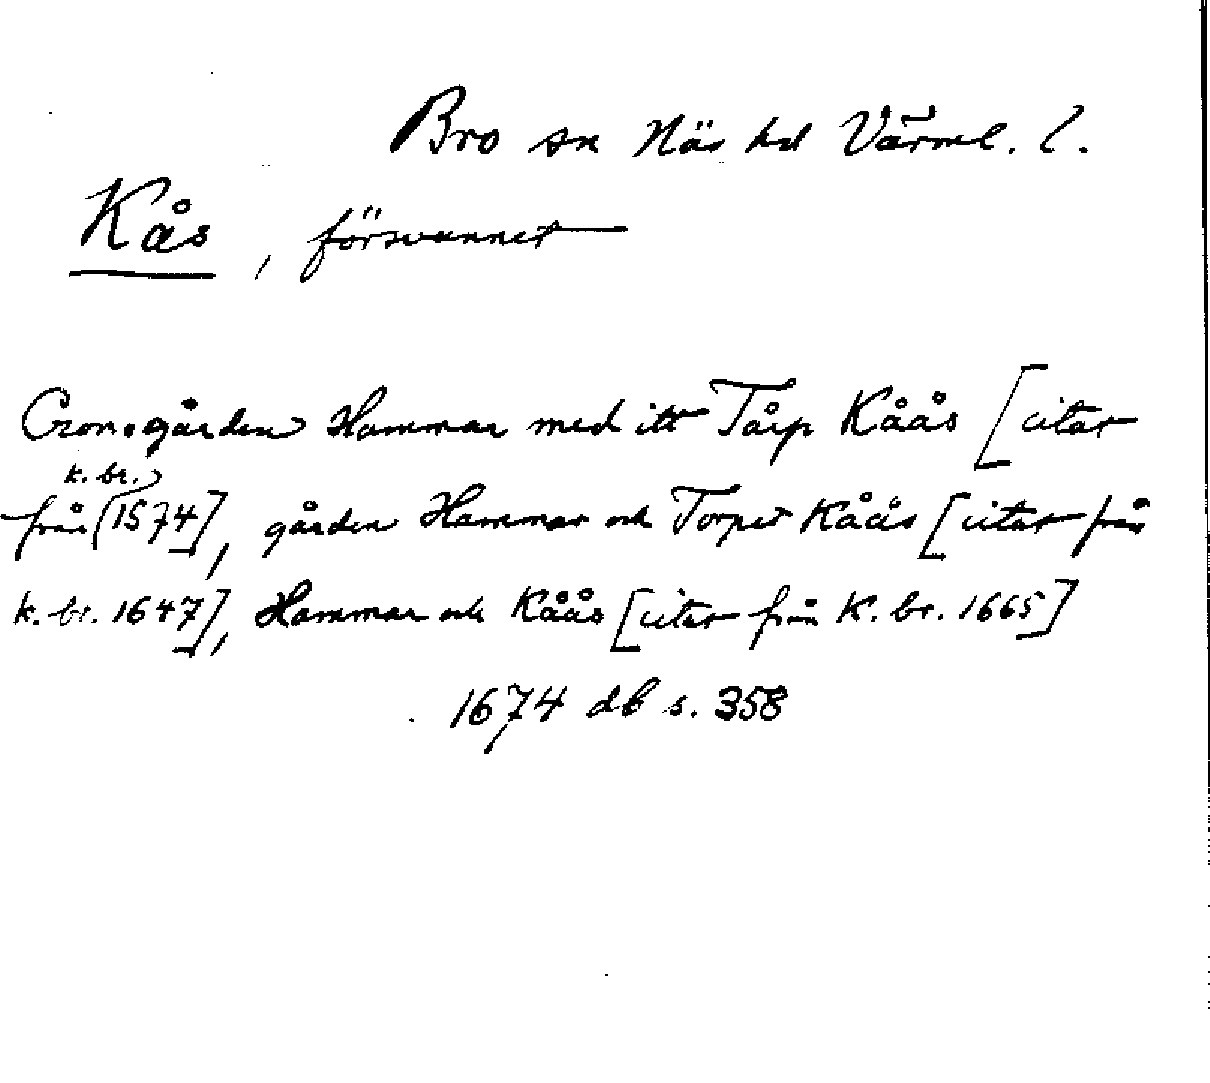 Bro sn Näs hd Värml. l.
Kås, försvunnet
Cronogården Hammar med itt Tårp Kåås [citat
från k. br. 1574], gården Hammar och Torpet Kåås [citat från
k. br. 1647], Hammar och Kåås [citat från K. br. 1665]
1674 db s. 358